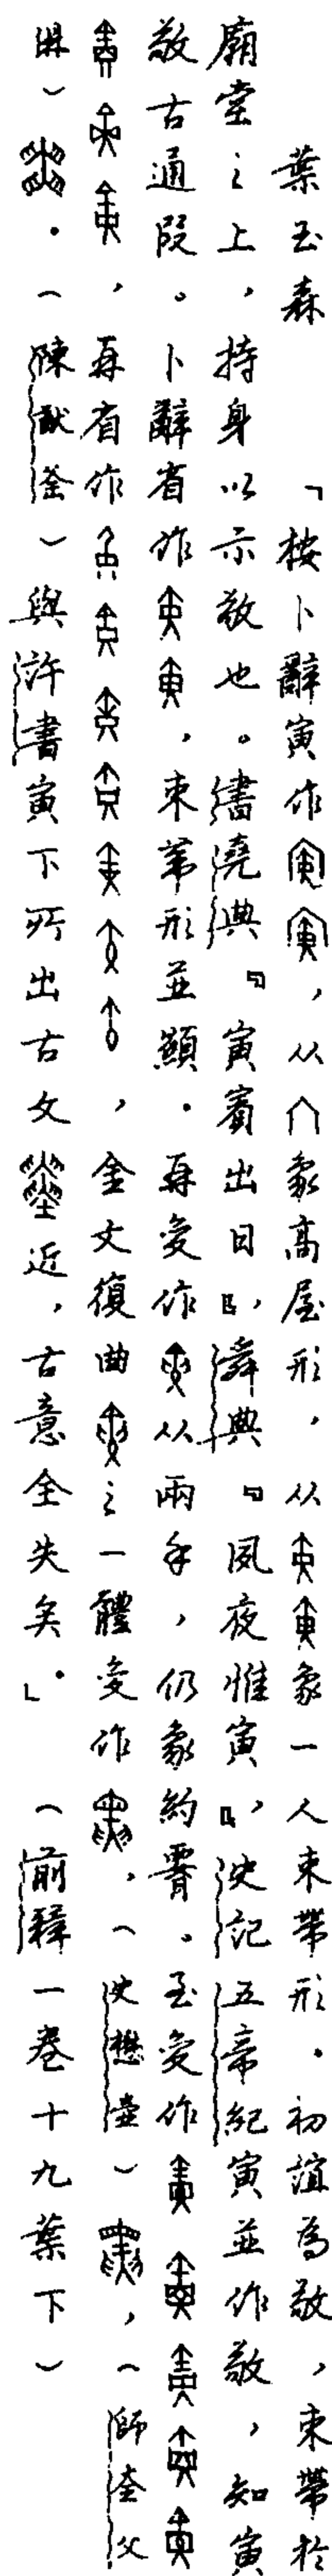 葉玉森　「按卜辭寅作，从宀象高屋形，从象一人束帶形。初誼為敬，束帶於
廟堂之上，持身以示敬也。書堯典『寅賓出日』，舜典『夙夜惟寅』，史記五帝紀寅並作敬，知寅
敬古通叚。卜辭省作，束帶形並顯。再變作从兩手，仍象約脊。至變作
，再省作，金文復曲之一體變作，（史懋壺），（師奎父
鼎）。（陳猷釜）與許書寅下所出古文近，古意全失矣。」　（前釋一卷十九葉下）